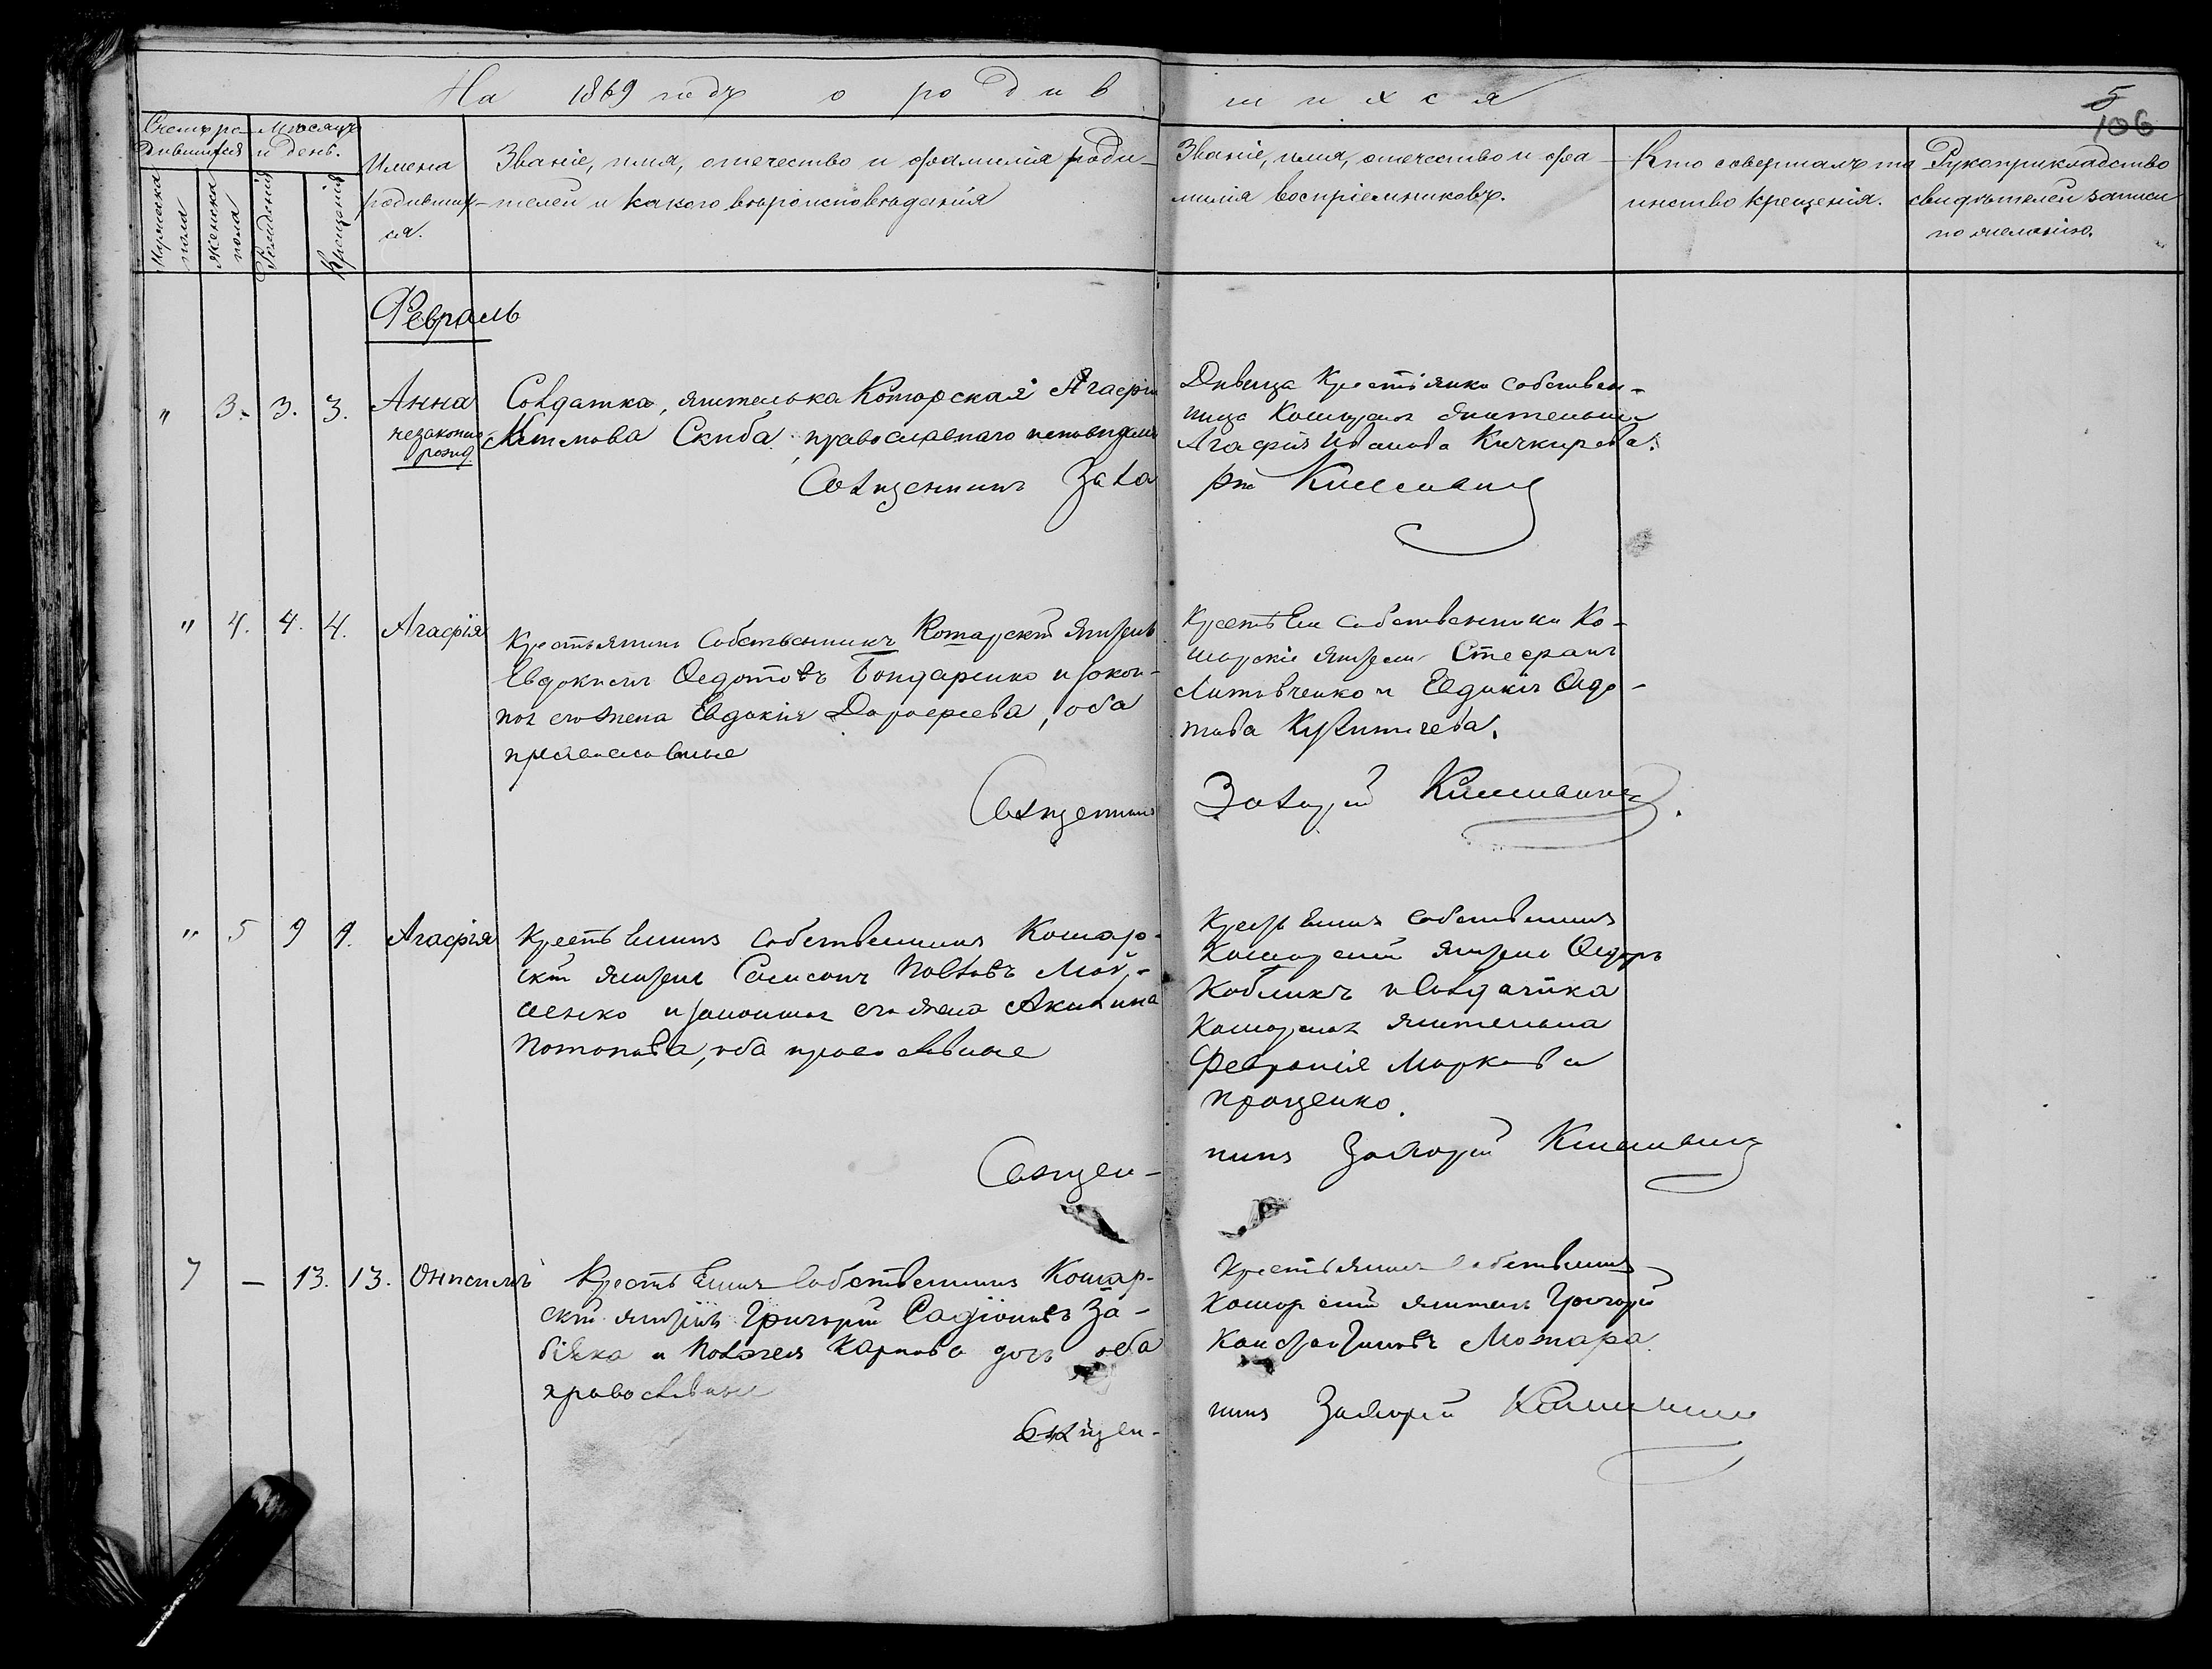 На 1869 годъ о родив шихся
5
106
Счетъ ро- Мѣсяцъ
дившихся и день.
Мужеска пола
Женска пола
Рожденія
Крещенія
Имена
родивших-
ся.
Званіе, имя, отечество и фамилія роди-
телей и какого вѣроисповѣданія
Званіе, имя, отечество и фа-
милія воспріемниковъ.
Кто совершалъ та
инство крещенія.
Рукоприкладство
свидѣтелей записи
по желанію.
Февраль
" 3. 3. 3. Анна
незаконно
рожд.
Солдатка, жителька Кошарская Агафія
Скиба, православнаго
Священникъ Заха
Дѣвица Крестьянка собствен-
ница Кошарская жителька
Агафія Иванова
рій
" 4. 4. 4. Агафія
Крестьянинъ Собственникъ Кошарскій житель
Евдокимъ Федотовъ Бондаренко и закон-
ная его жена Евдокія Дорофеева, оба
православные
Священникъ
Крестьяне собственники Ко-
шарскіе жители Стефанъ
Литовченко и Евдокія Федо-
това
Захарій
" 5 9 9. Агафія
Крестьянинъ собственникъ Кошар-
скій житель Самсонъ Павловъ Мой-
сенко и законная его жена Акилина
Потапова, оба православные
Священ-
Крестьянинъ собственникъ
Кошарскій житель Федоръ
Кобликъ и Солдатка
Кошарская жителька
Февронія Маркова
Проценко.
никъ Захарій
7 — 13. 13. Онисимъ
Крестьянинъ Собственникъ Кошар-
скій житель Григорій Радіоновъ За-
біяка и Пелагея Карпова дочь оба
православные
Священ-
Крестьянинъ Собственникъ
Кошарскій житель Григорій
Константиновъ Можара.
никъ Захарій